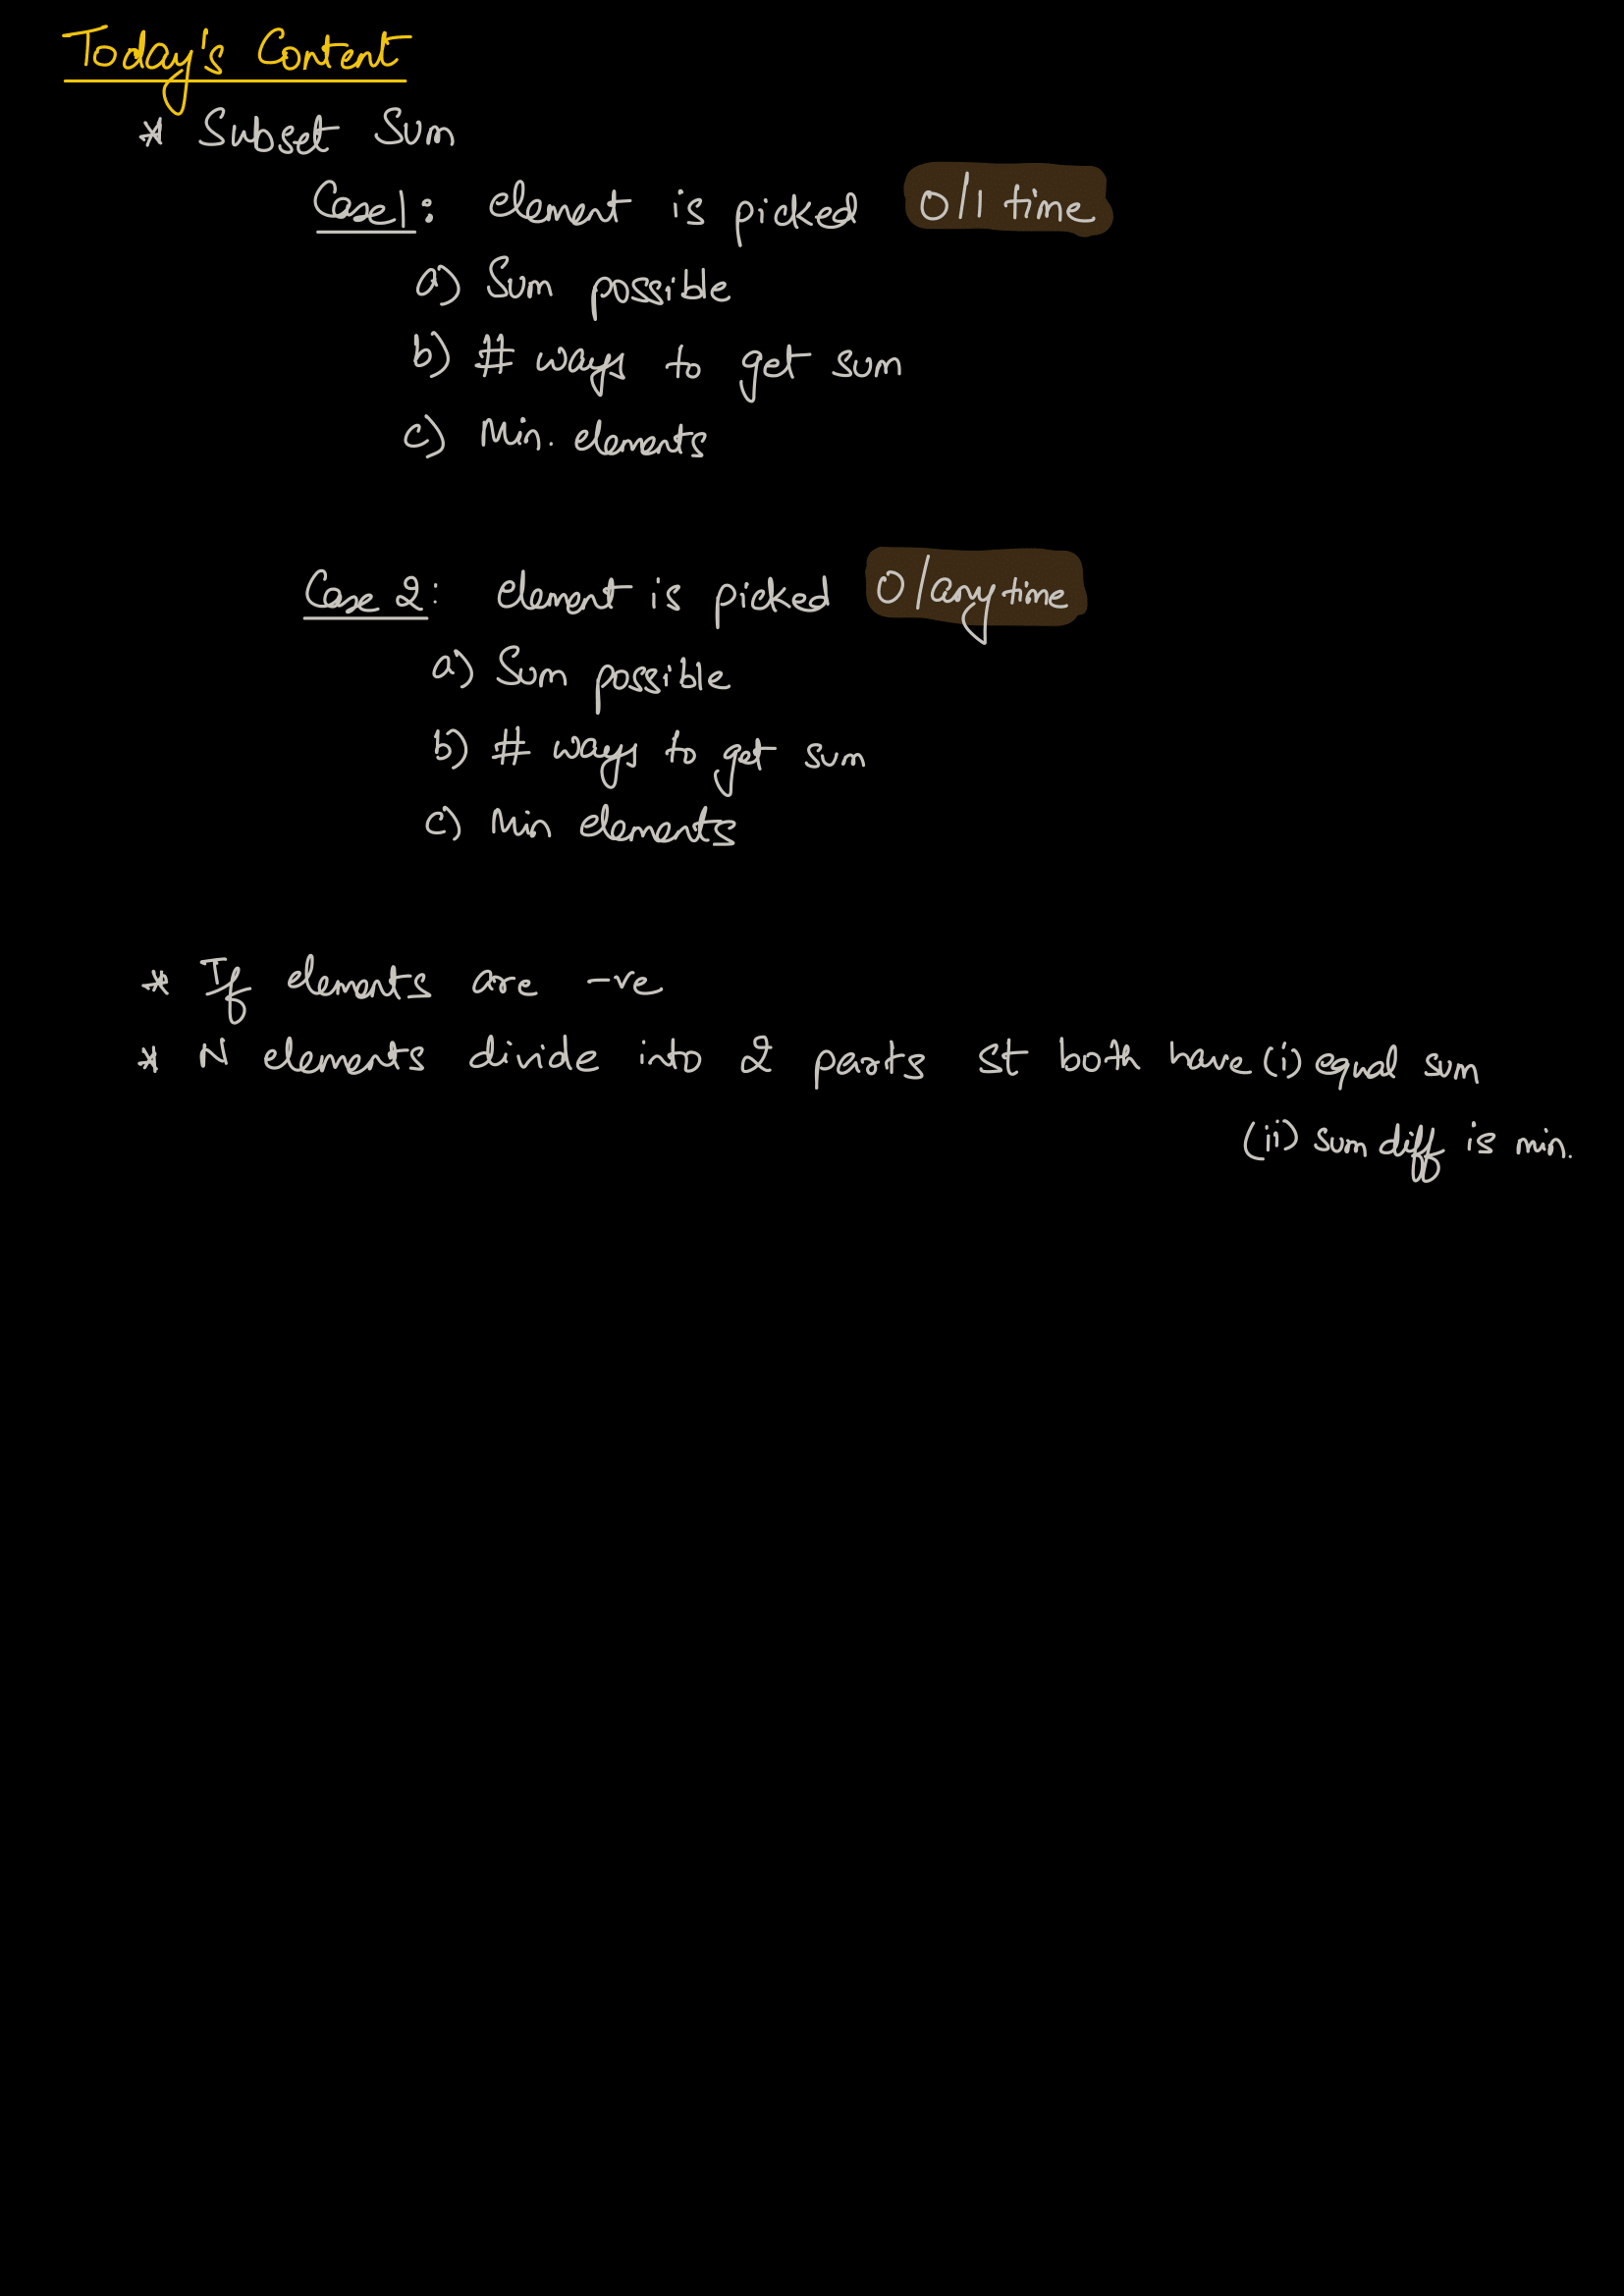 Today's Content
* Subset Sum
Case 1: element is picked 0/1 time
a) Sum possible
b) # ways to get sum
c) Min. elements
Case 2: element is picked 0/any time
a) Sum possible
b) # ways to get sum
c) Min elements
* If elements are -ve
* N elements divide into 2 parts st both have (i) equal sum
(ii) sum diff is min.